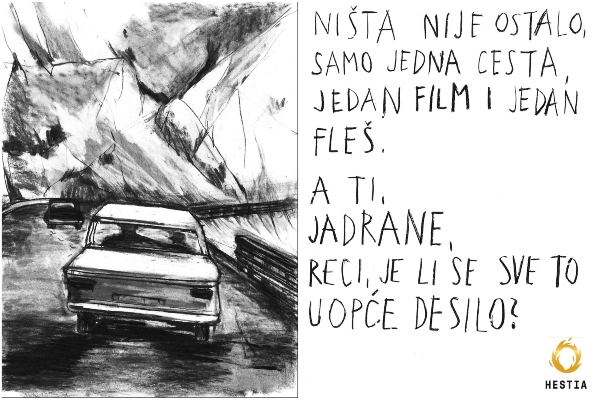 NIŠTA NIJE OSTALO,
SAMO JEDNA CESTA,
JEDAN FILM I JEDAN
FLEŠ.
A TI,
JADRANE,
RECI, JE LI SE SVE TO
UOPĆE DESILO?
HESTIA